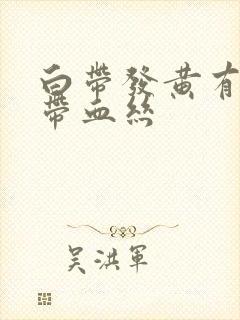 白帶發黃有
帶血絲
吴洪軍